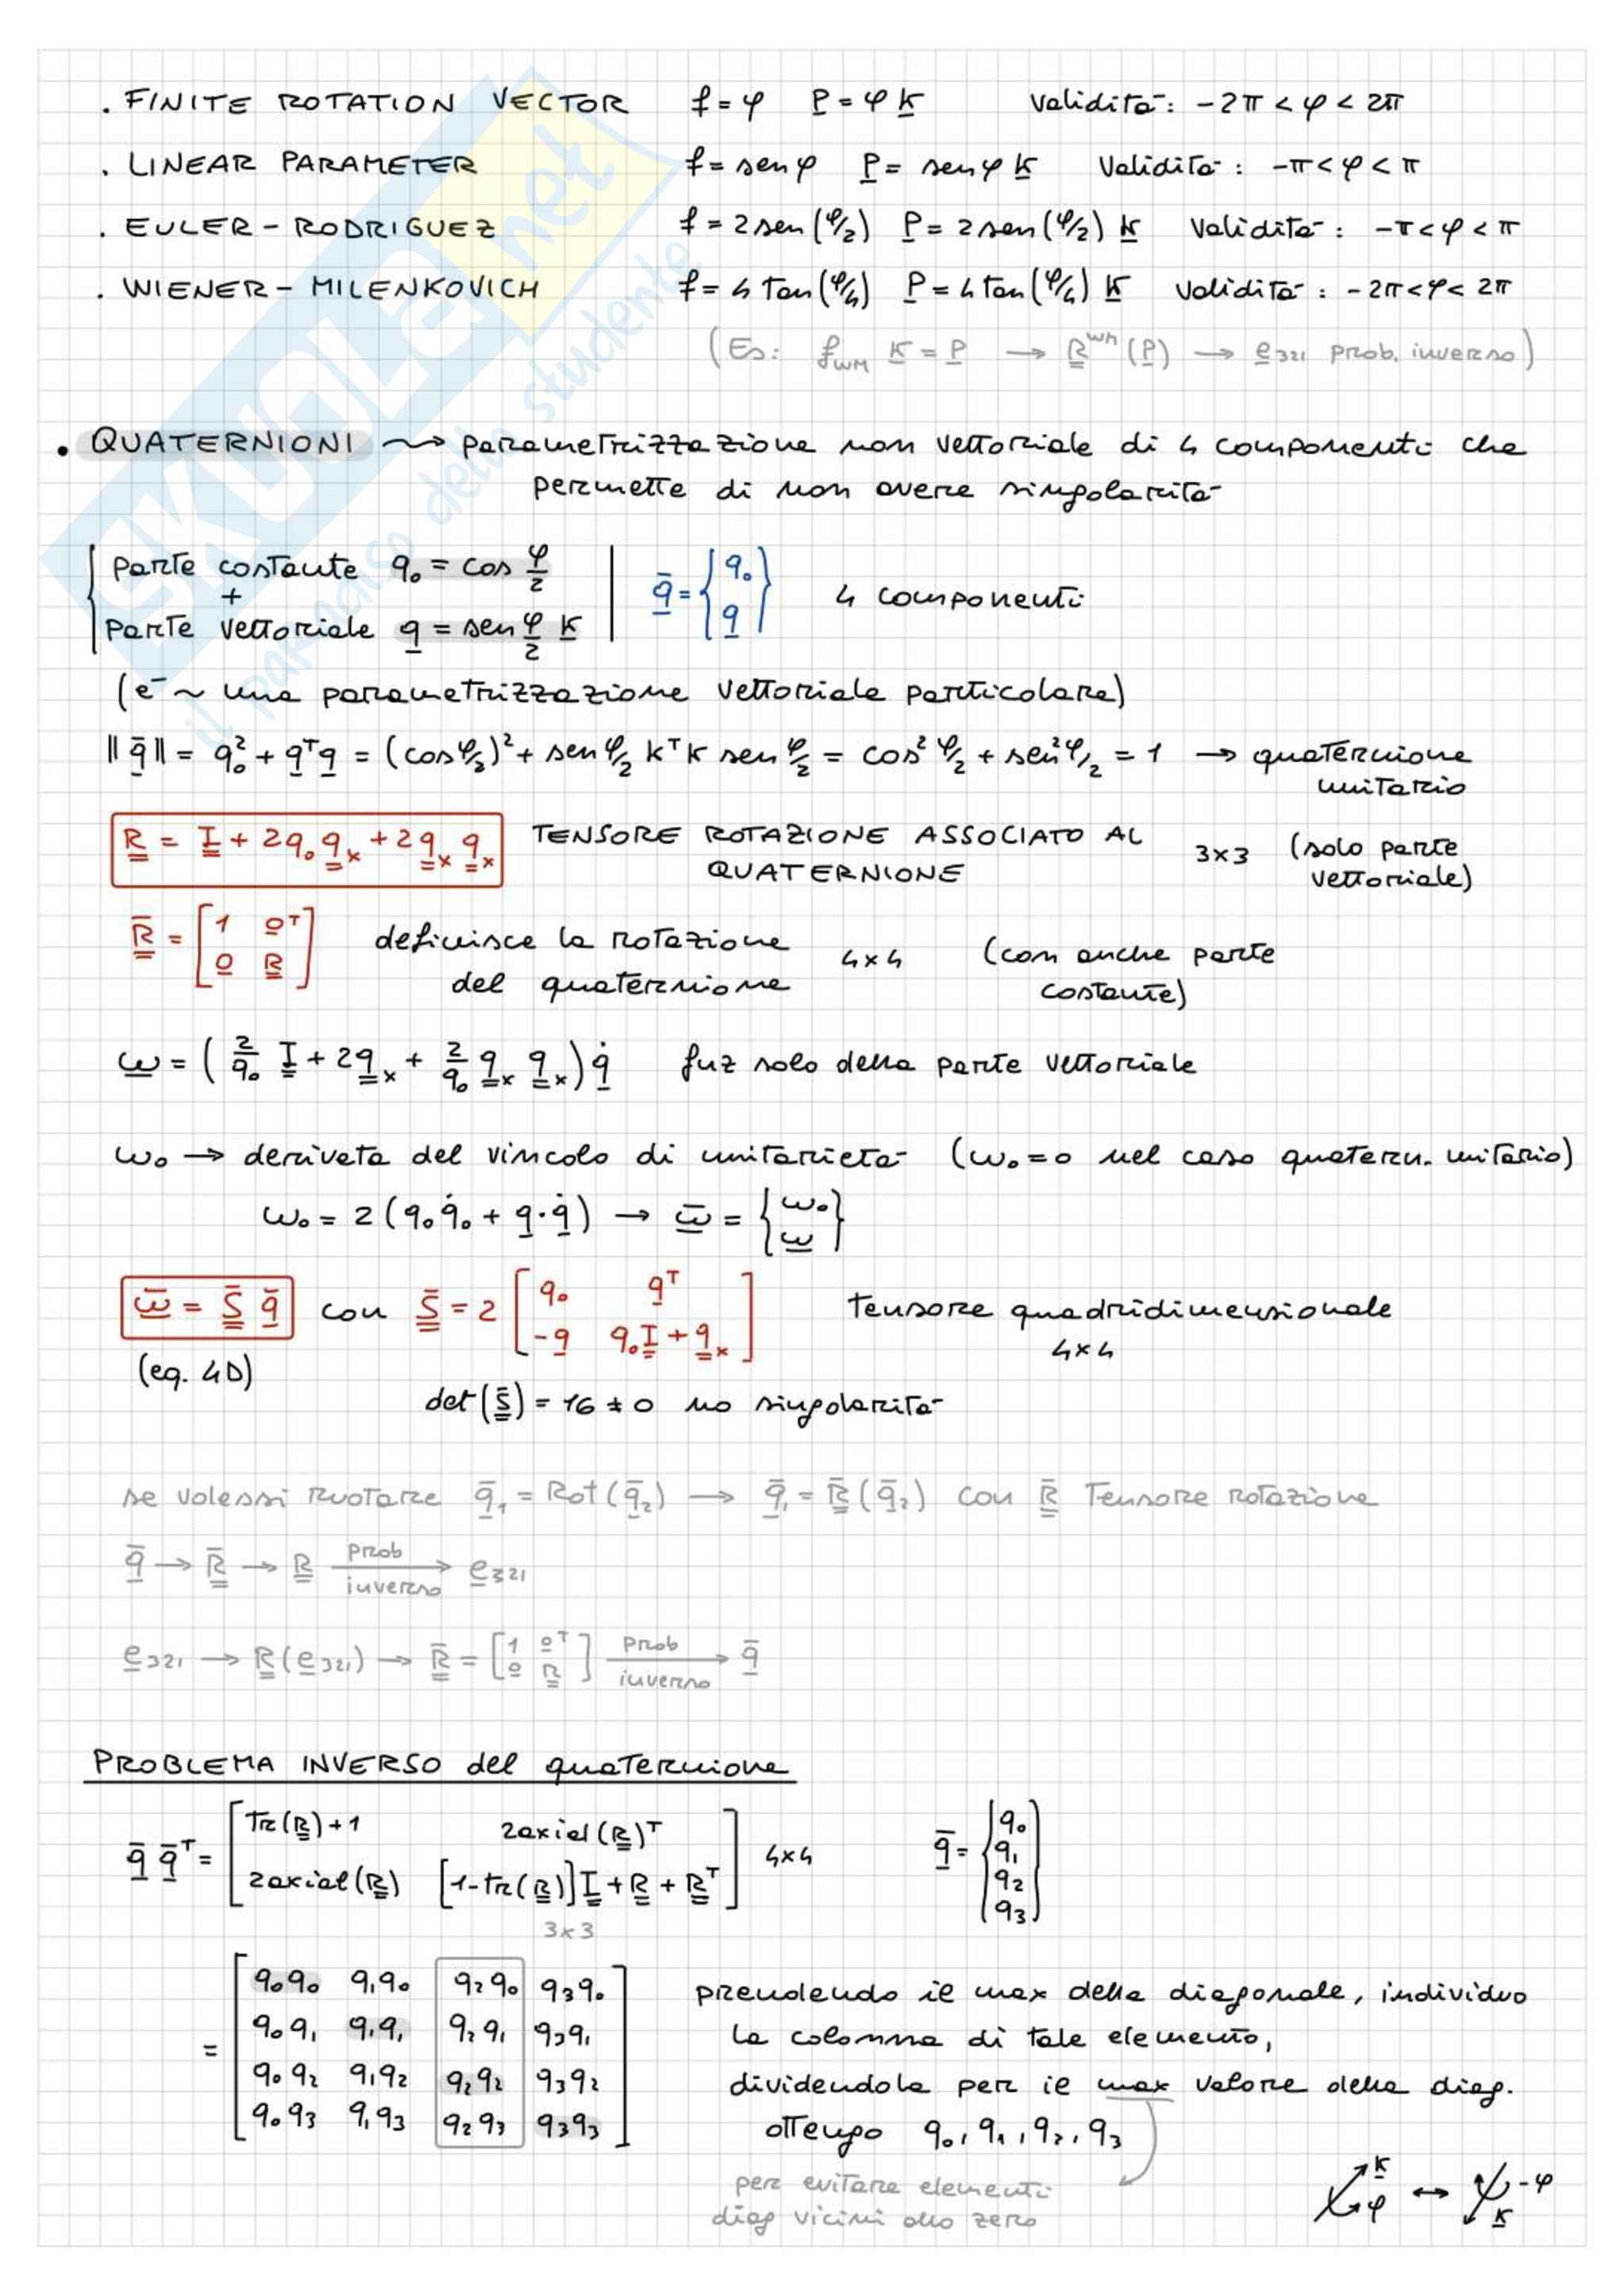 . FINITE ROTATION VECTOR f = φ p = φ k validità: -2π < φ < 2π
. LINEAR PARAMETER f = sen φ p = sen φ k validità: -π < φ < π
. EULER - RODRIGUEZ f = 2 sen (φ/2) p = 2 sen (φ/2) k validità: -π < φ < π
. WIENER - MILENKOVICH f = 4 tan (φ/4) p = 4 tan (φ/4) k validità: -2π < φ < 2π
(Es: f_WM k = p → R^WM (p) → e₃₂₁ prob. inverso)
• QUATERNIONI ⇝ parametrizzazione non vettoriale di 4 componenti che
permette di non avere singolarità
parte costante q₀ = cos φ/2
+
parte vettoriale q = sen φ/2 k
q̄ = {q₀ q} 4 componenti
(è ~ una parametrizzazione vettoriale particolare)
‖q̄‖ = q₀² + qᵀq = (cos φ/2)² + sen φ/2 kᵀk sen φ/2 = cos² φ/2 + sen² φ/2 = 1 → quaternione
unitario
R = I + 2q₀ q× + 2 q× q× TENSORE ROTAZIONE ASSOCIATO AL 3×3 (solo parte
QUATERNIONE vettoriale)
R̄ = [1 0ᵀ
0 R] definisce la rotazione 4×4 (con anche parte
del quaternione costante)
ω = (2/q₀ I + 2q× + 2/q₀ q× q×) q̇ fuz solo della parte vettoriale
ω₀ → derivata del vincolo di unitarietà (ω₀ = 0 nel caso quatern. unitario)
ω₀ = 2 (q₀ q̇₀ + q · q̇) → ω̄ = {ω₀ ω}
ω̄ = S̄ q̄ con S̄ = 2 [q₀ qᵀ
-q q₀ I + q×] tensore quadridimensionale
4×4
(eq. 4D)
det (S̄) = 16 ≠ 0 no singolarità
se volessi ruotare q̄₁ = Rot (q̄₂) → q̄₁ = R̄ (q̄₂) con R̄ Tensore rotazione
q̄ → R̄ → R prob inverso → e₃₂₁
e₃₂₁ → R (e₃₂₁) → R̄ = [1 0ᵀ 0 R] prob inverso → q̄
PROBLEMA INVERSO del quaternione
q̄ q̄ᵀ = [Tr(R)+1 2axial(R)ᵀ
2axial(R) [1-tr(R)] I + R + Rᵀ] 4×4 q̄ = {q₀ q₁ q₂ q₃}
3×3
= [q₀q₀ q₁q₀ q₂q₀ q₃q₀
q₀q₁ q₁q₁ q₂q₁ q₃q₁
q₀q₂ q₁q₂ q₂q₂ q₃q₂
q₀q₃ q₁q₃ q₂q₃ q₃q₃]
prendendo il max della diagonale, individuo
la colonna di tale elemento,
dividendola per il max valore della diag.
ottengo q₀, q₁, q₂, q₃
per evitare elementi
diag vicini allo zero
k φ ↔ -φ k
SKUOLA.net
il paradiso dello studente